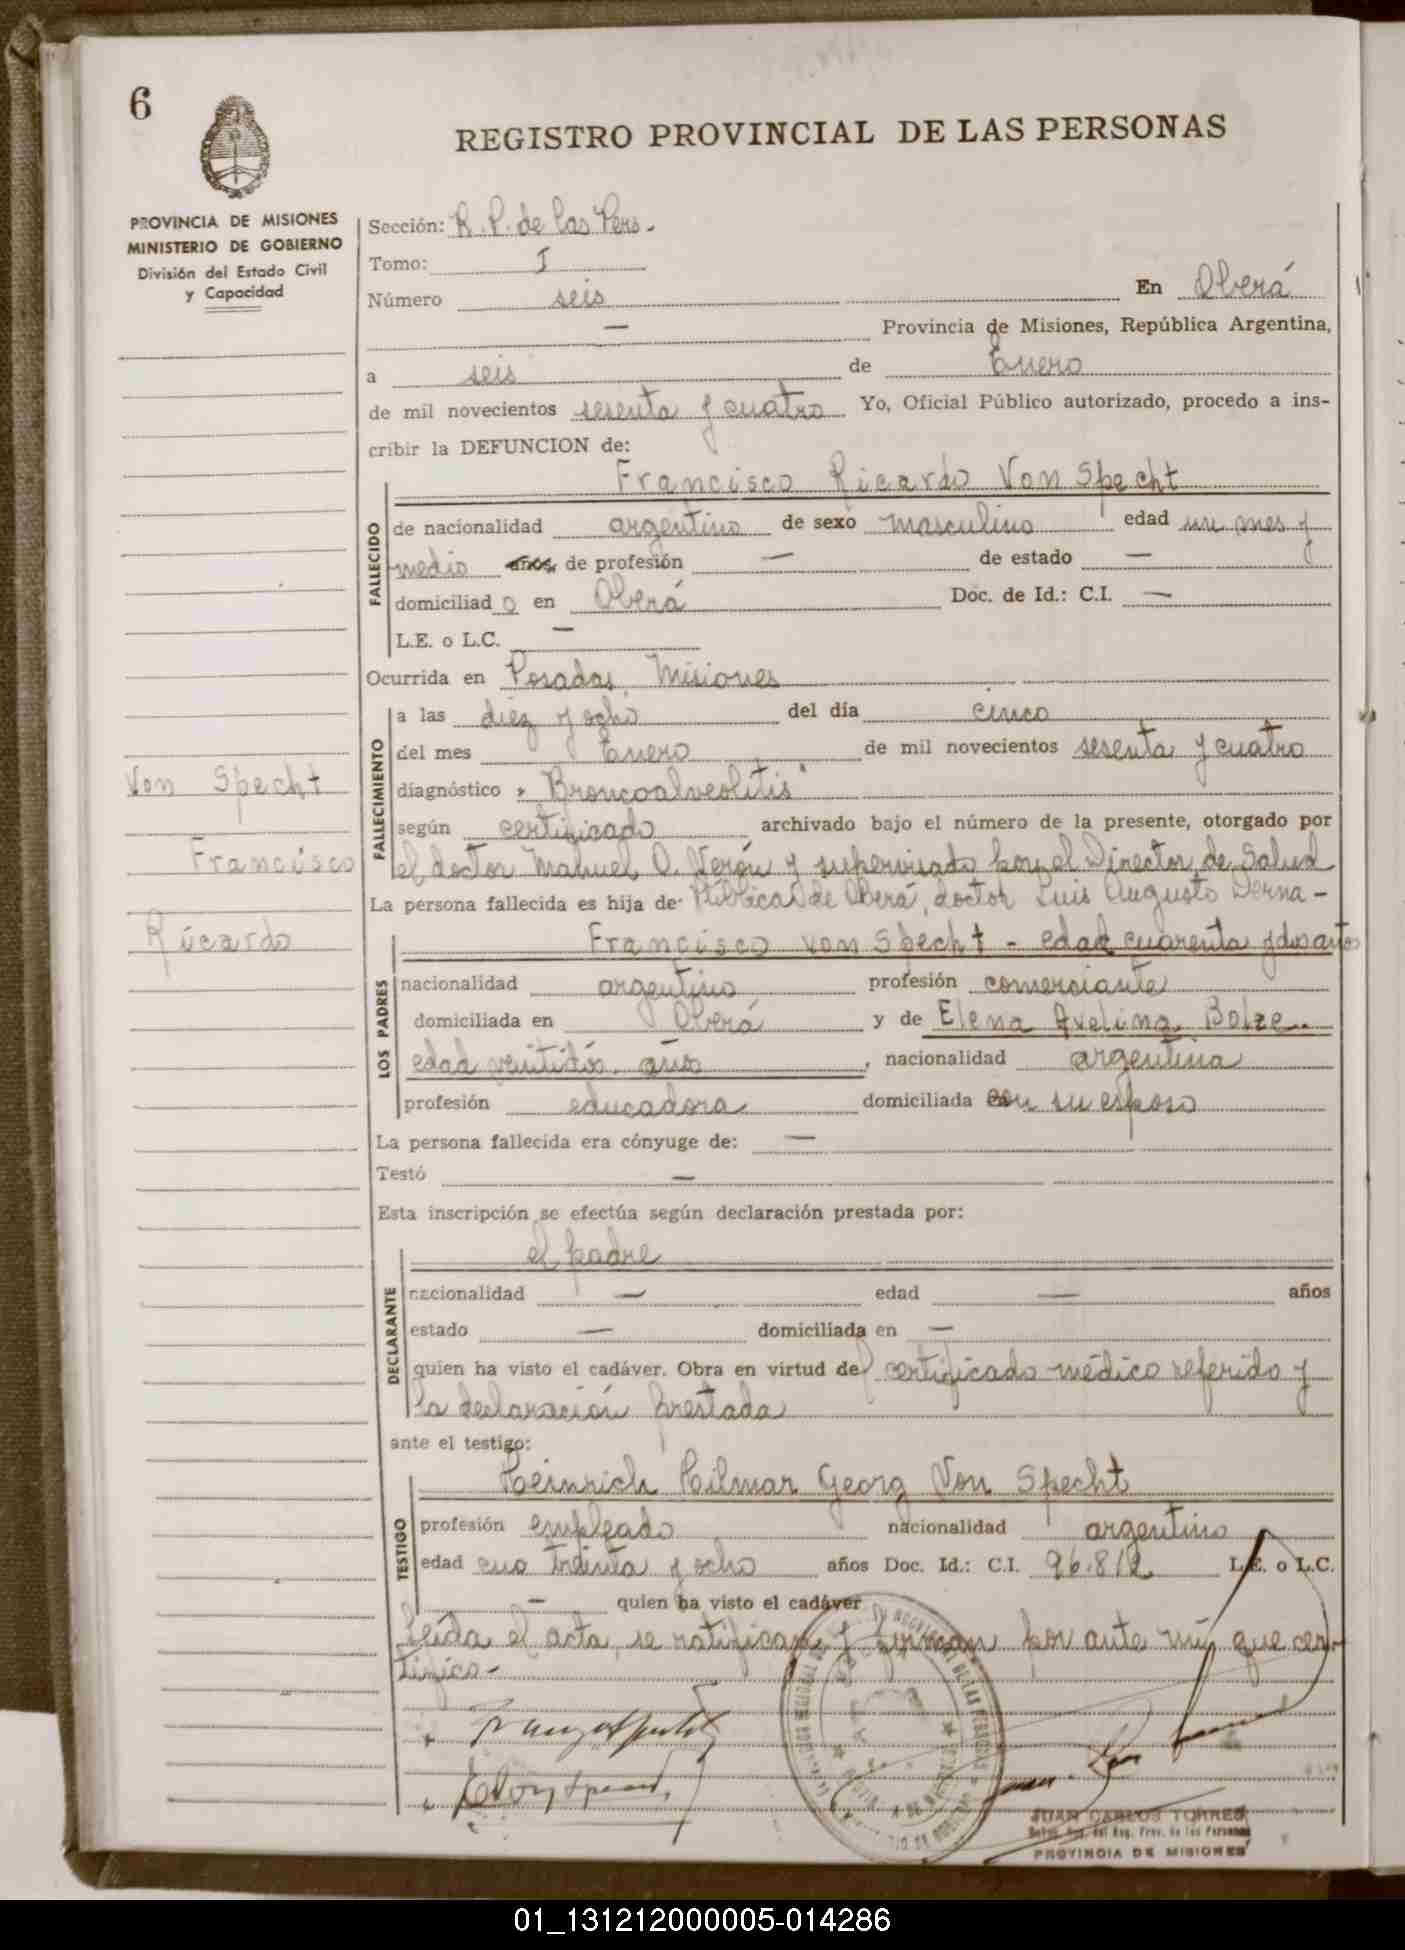 6
REGISTRO PROVINCIAL DE LAS PERSONAS
PROVINCIA DE MISIONES
MINISTERIO DE GOBIERNO
División del Estado Civil
y Capacidad
Sección: R. P. de las Pers.
Tomo: I
Número seis En Oberá
— Provincia de Misiones, República Argentina,
a seis de Enero
de mil novecientos sesenta y cuatro Yo, Oficial Público autorizado, procedo a ins-
cribir la DEFUNCION de:
Francisco Ricardo Von Specht
FALLECIDO
de nacionalidad argentino de sexo masculino edad un mes y
medio años, de profesión — de estado —
domiciliado en Oberá Doc. de Id.: C.I. —
L.E. o L.C. —
Ocurrida en Posadas, Misiones
FALLECIMIENTO
a las diez y ocho del día cinco
del mes Enero de mil novecientos sesenta y cuatro
diagnóstico "Broncoalveolitis"
según certificado archivado bajo el número de la presente, otorgado por
el doctor Manuel O. Verón y supervisado por el Director de Salud
La persona fallecida es hija de: Pública de Oberá, doctor Luis Augusto Derna-
Von Specht
Francisco
Ricardo
LOS PADRES
Francisco von Specht - edad cuarenta y dos años
nacionalidad argentino profesión comerciante
domiciliada en Oberá y de Elena Avelina Bolze
edad veintidós años, nacionalidad argentina
profesión educadora domiciliada con su esposo
La persona fallecida era cónyuge de: —
Testó —
Esta inscripción se efectúa según declaración prestada por:
DECLARANTE
el padre
nacionalidad — edad — años
estado — domiciliada en —
quien ha visto el cadáver. Obra en virtud del certificado médico referido y
la declaración prestada
ante el testigo:
TESTIGO
Heinrich Hilmar Georg Von Specht
profesión empleado nacionalidad argentino
edad treinta y ocho años Doc. Id.: C.I. 96.812 L.E. o L.C.
— quien ha visto el cadáver
Leída el acta, se ratifican y firman por ante mí, que cer-
tifico-
JUAN CARLOS TORRES
PROVINCIA DE MISIONES
01_131212000005-014286